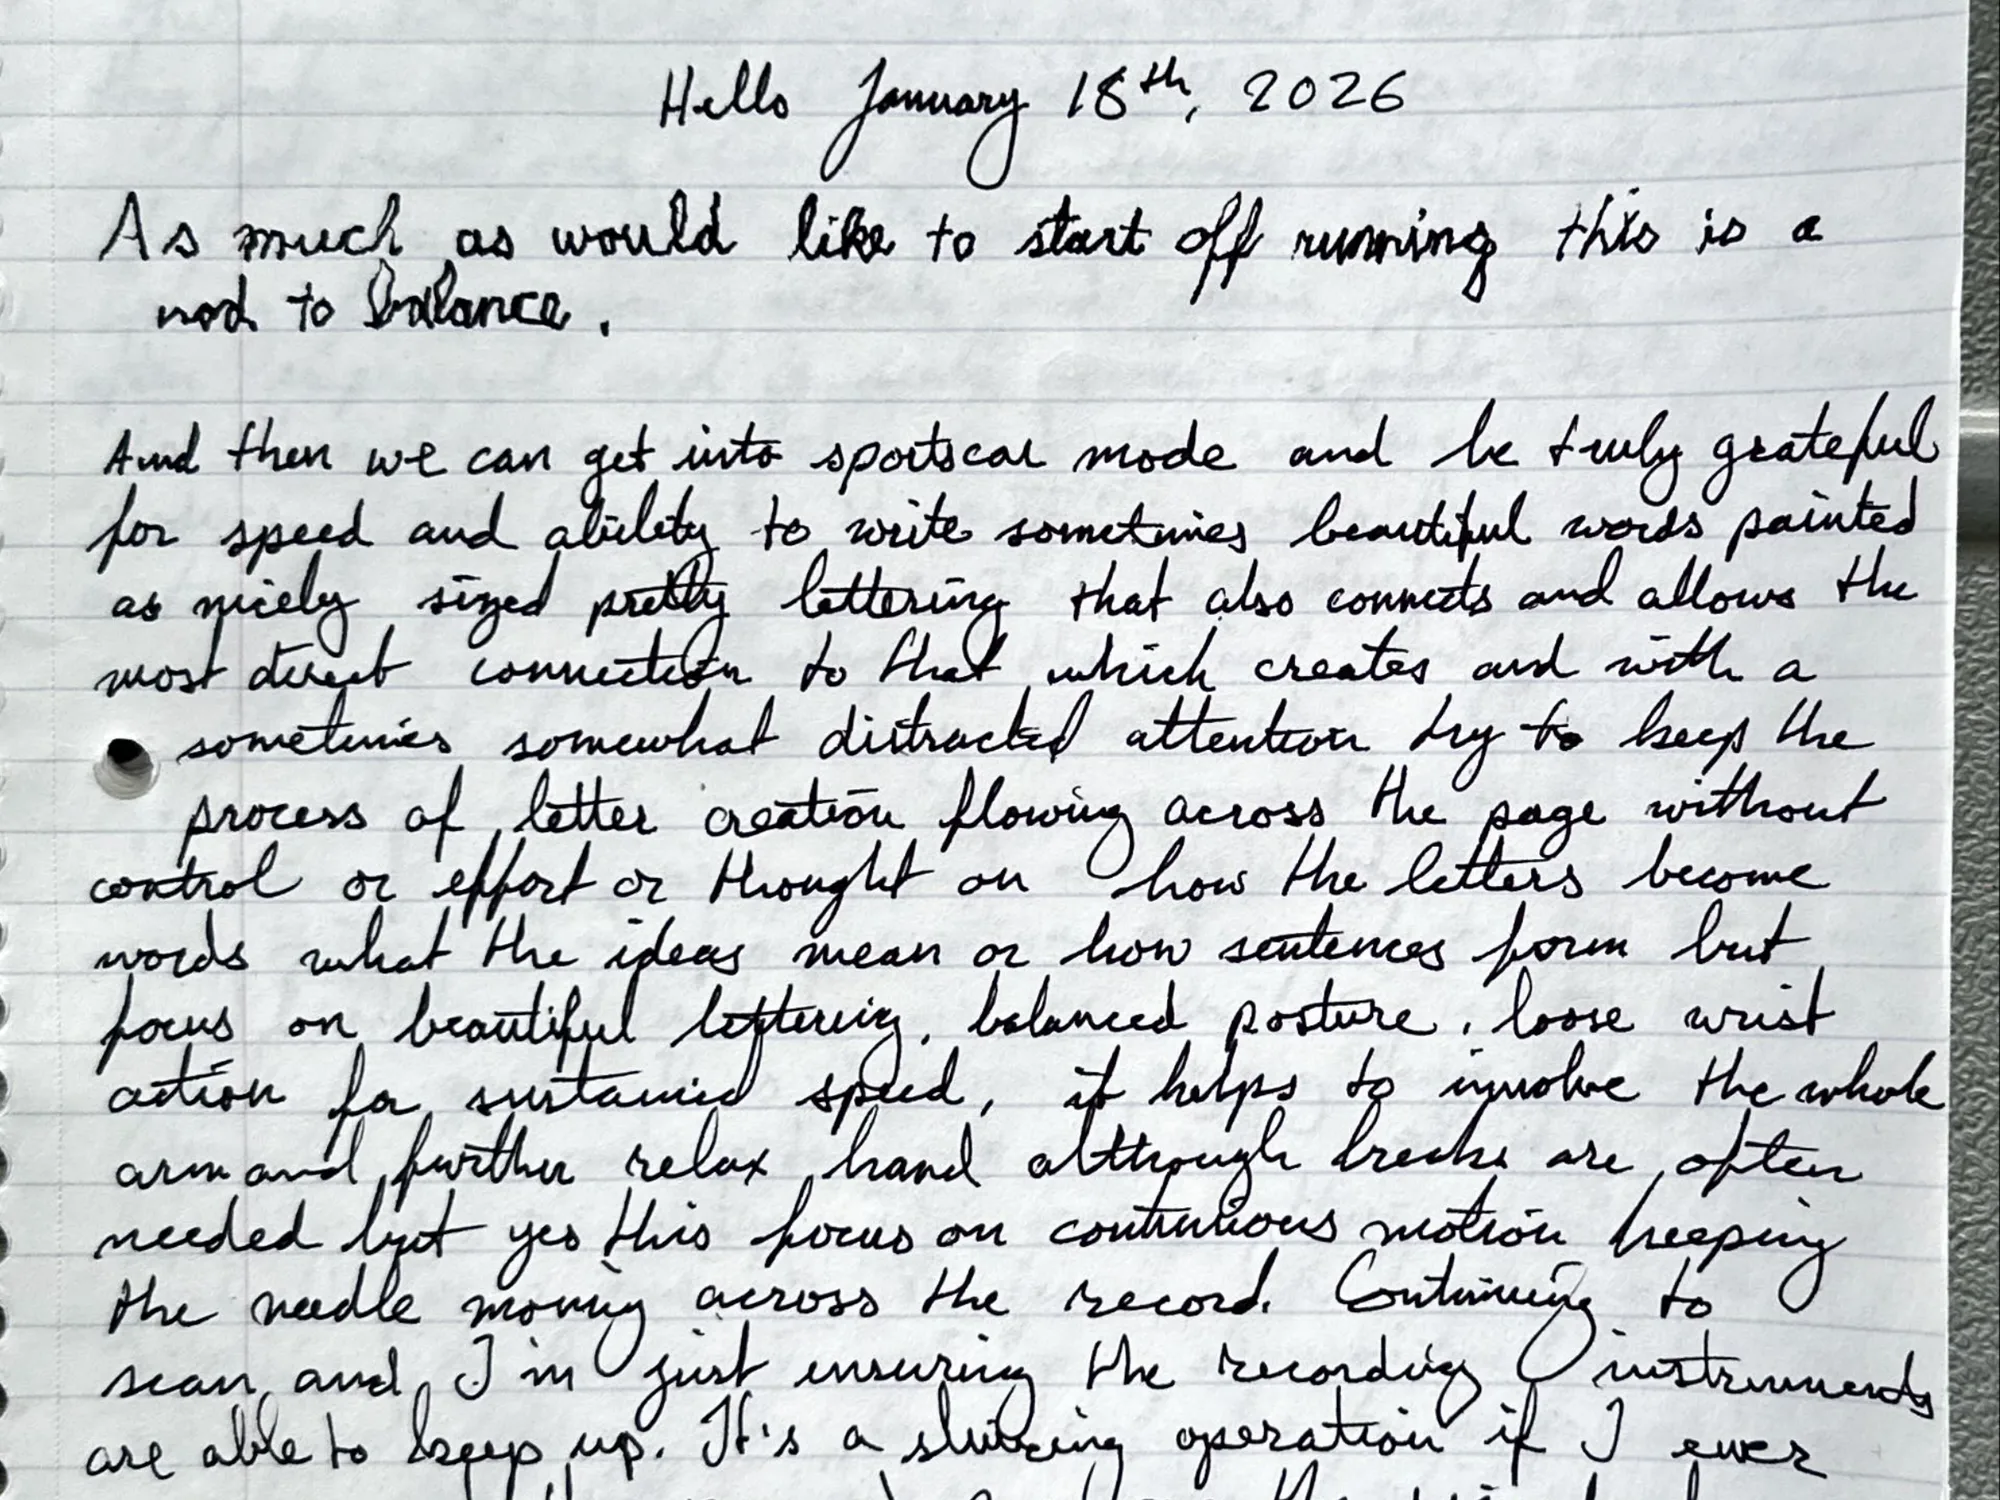 Hello January 18th, 2026
As much as would like to start off running this is a
nod to balance.
And then we can get into sportscar mode and be truly grateful
for speed and ability to write sometimes beautiful words painted
as nicely sized pretty lettering that also connects and allows the
most direct connection to that which creates and with a
sometimes somewhat distracted attention try to keep the
process of letter creation flowing across the page without
control or effort or thought on how the letters become
words what the ideas mean or how sentences form but
focus on beautiful lettering, balanced posture, loose wrist
action for sustained speed, it helps to involve the whole
arm and further relax hand although breaks are often
needed but yes this focus on continuous motion keeping
the needle moving across the record. Continuing to
scan and I'm just ensuring the recording instruments
are able to keep up. It's a operation if I ever